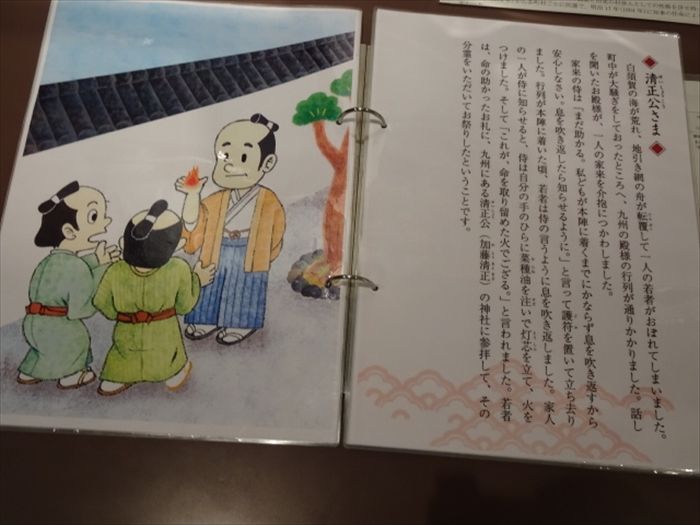 清正公さま
せいしょうこう
白須賀の海が荒れ、地引き網の舟が転覆して一人の若者がおぼれてしまいました。
町中が大騒ぎをしておったところへ、九州の殿様の行列が通りかかりました。話し
を聞いたお殿様が、一人の家来を介抱につかわしました。
家来の侍は「まだ助かる。私どもが本陣に着くまでにかならず息を吹き返すから
安心しなさい。息を吹き返したら知らせるように。」と言って護符を置いて立ち去り
ました。行列が本陣に着いた頃、若者は侍の言うように息を吹き返しました。家人
の一人が侍に知らせると、侍は自分の手のひらに菜種油を注いで灯芯を立て、火を
つけました。そして「これが、命を取り留めた火でござる。」と言われました。若者
は、命の助かったお礼に、九州にある清正公（加藤清正）の神社に参拝して、その
分霊をいただいてお祭りしたということです。